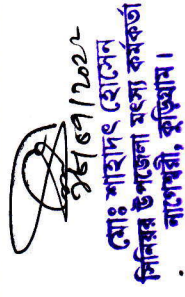 ২৫/০৭/২০২২
মোঃ শাহাদৎ হোসেন
সিনিয়র উপজেলা মৎস্য কর্মকর্তা
নাগেশ্বরী, কুড়িগ্রাম।